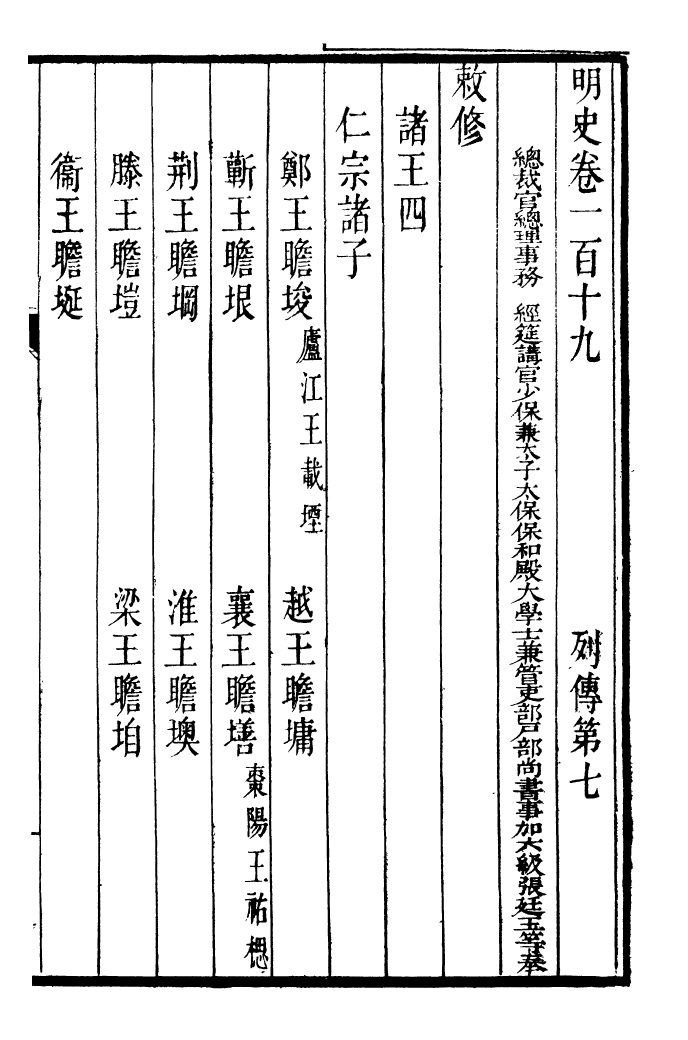 明史卷一百十九　列傳第七
總裁官總理事務　經筵講官少保兼太子太保保和殿大學士兼管吏部戶部尚書事加六級張廷玉等奉
敕修
諸王四
仁宗諸子
鄭王瞻埈　廬江王載堙　越王瞻墉
蘄王瞻垠　襄王瞻墡　棗陽王祐楒
荆王瞻堈　淮王瞻墺
滕王瞻塏　梁王瞻垍
衞王瞻埏